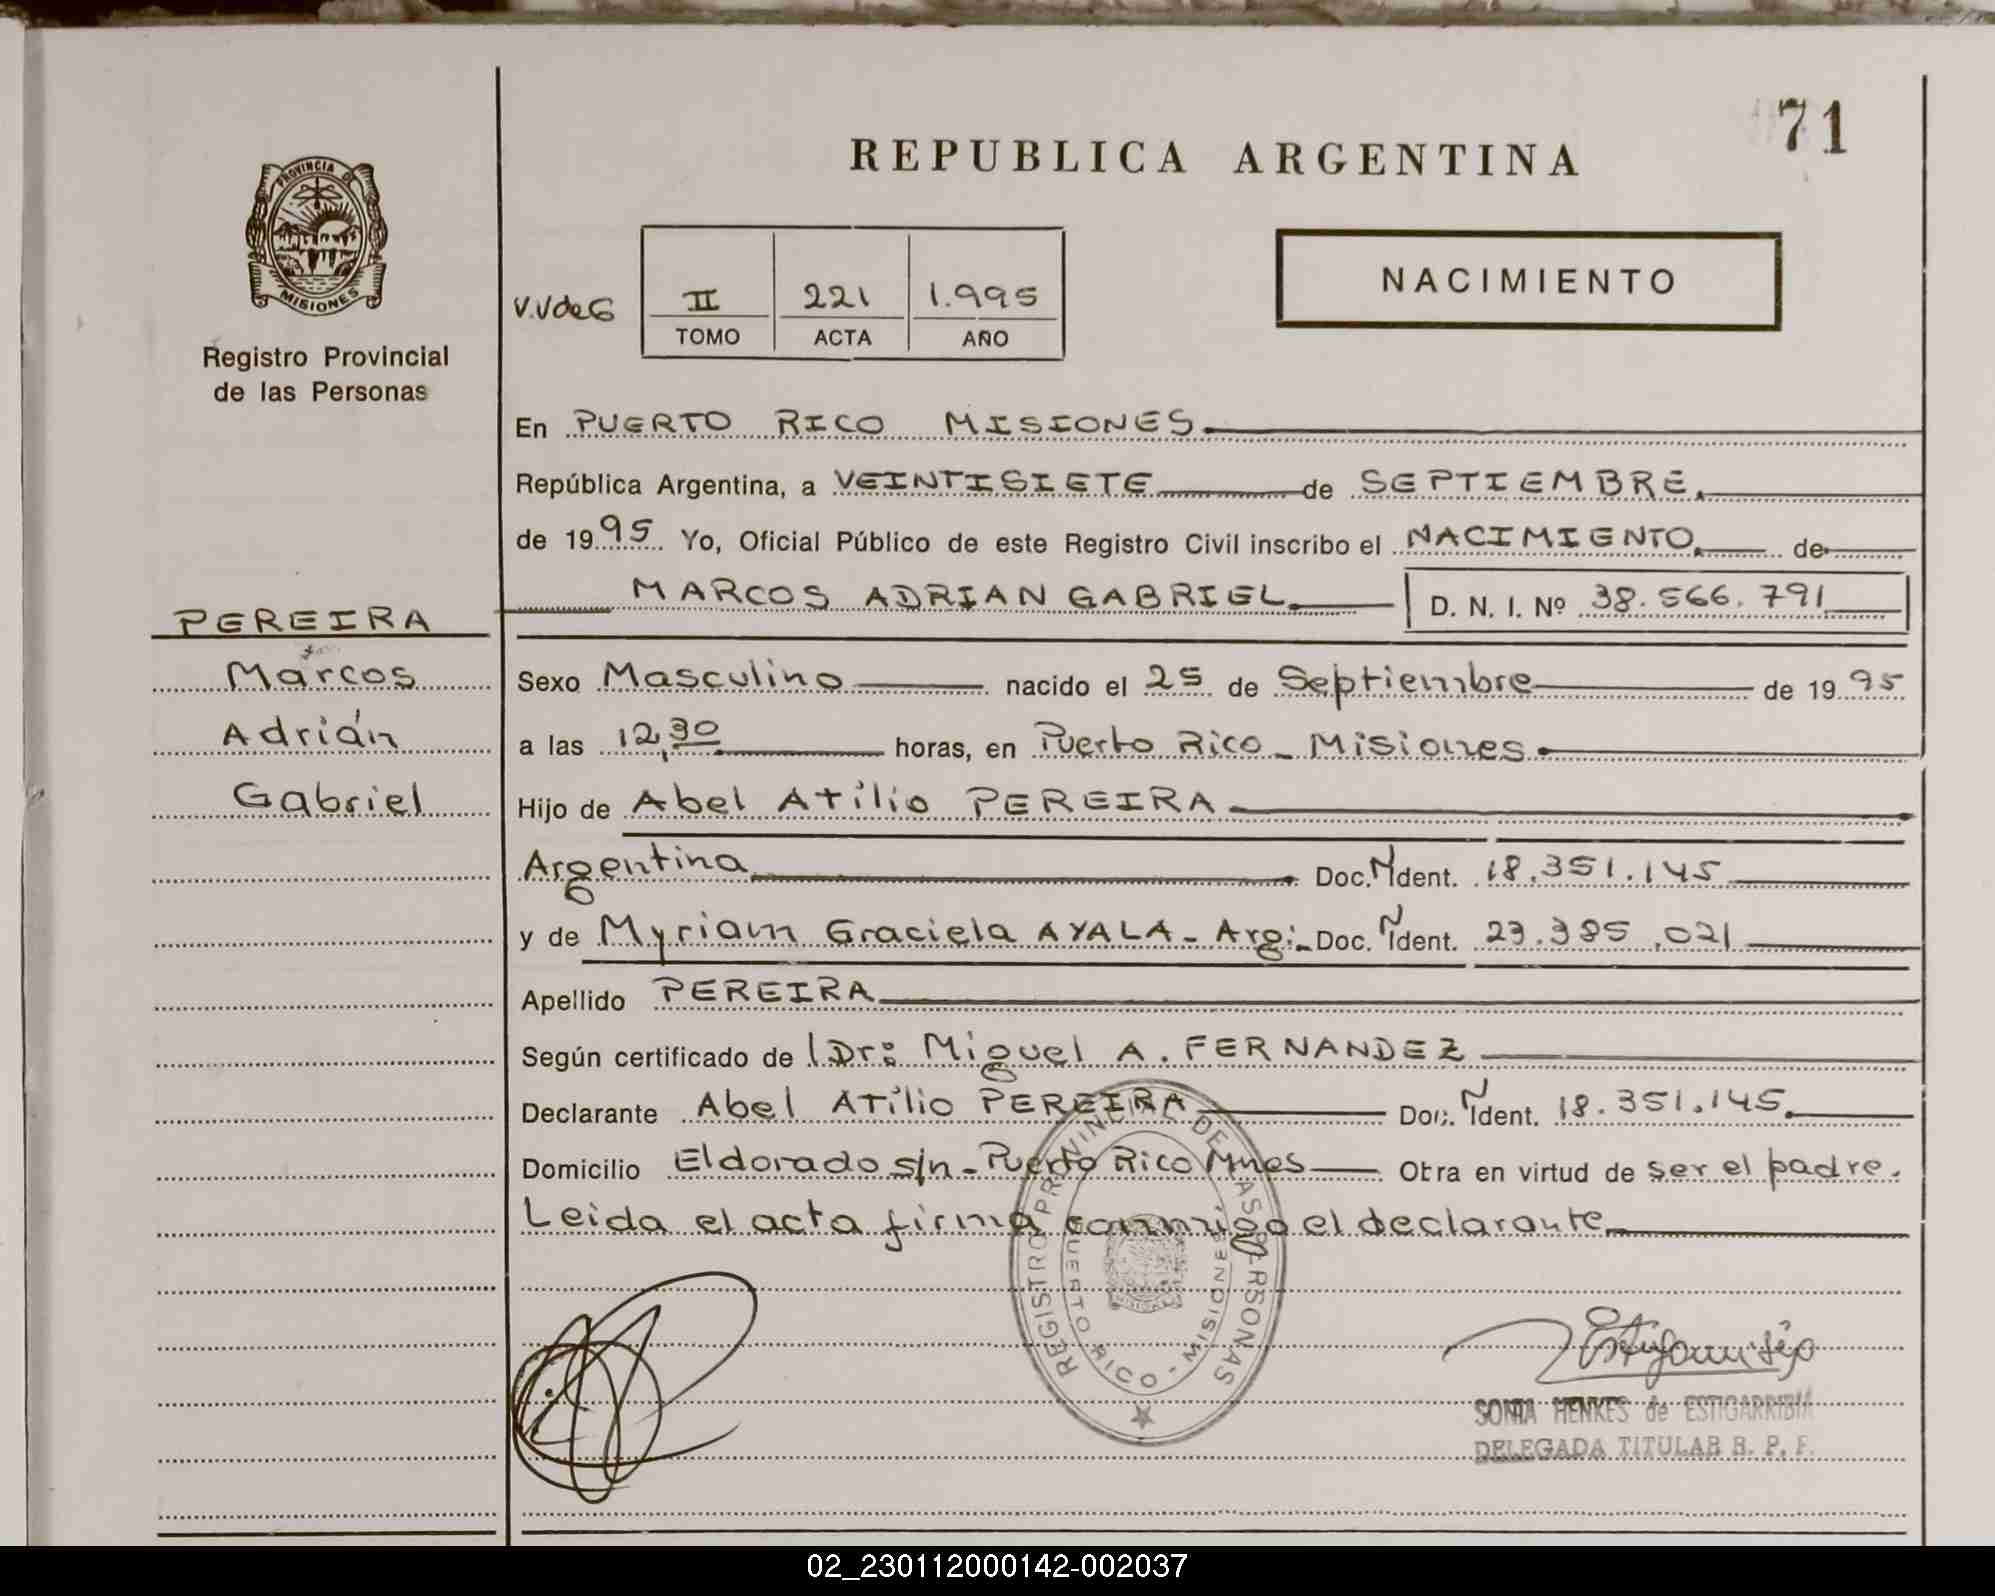 71
REPUBLICA ARGENTINA
PROVINCIA DE
MISIONES
Registro Provincial
de las Personas
NACIMIENTO
V.VdeG
II 221 1.995
TOMO ACTA AÑO
En PUERTO RICO MISIONES
República Argentina, a VEINTISIETE de SEPTIEMBRE
de 1995 Yo, Oficial Público de este Registro Civil inscribo el NACIMIENTO de
MARCOS ADRIAN GABRIEL D. N. I. Nº 38.566.791
PEREIRA
Marcos
Adrián
Gabriel
Sexo Masculino nacido el 25 de Septiembre de 1995
a las 12,30 horas, en Puerto Rico - Misiones
Hijo de Abel Atilio PEREIRA
Argentina Doc. N Ident. 18.351.145
y de Myriam Graciela AYALA - Arg: Doc. N Ident. 23.385.021
Apellido PEREIRA
Según certificado de Dr: Miguel A. FERNANDEZ
Declarante Abel Atilio PEREIRA Doc. N Ident. 18.351.145
Domicilio Eldorado s/n - Puerto Rico Mnes Obra en virtud de ser el padre.
Leida el acta firma conmigo el declarante
REGISTRO PROVINCIAL DE LAS PERSONAS
PUERTO RICO - MISIONES
SONIA HENKES de ESTIGARRIBIA
DELEGADA TITULAR R. P. P.
02_230112000142-002037